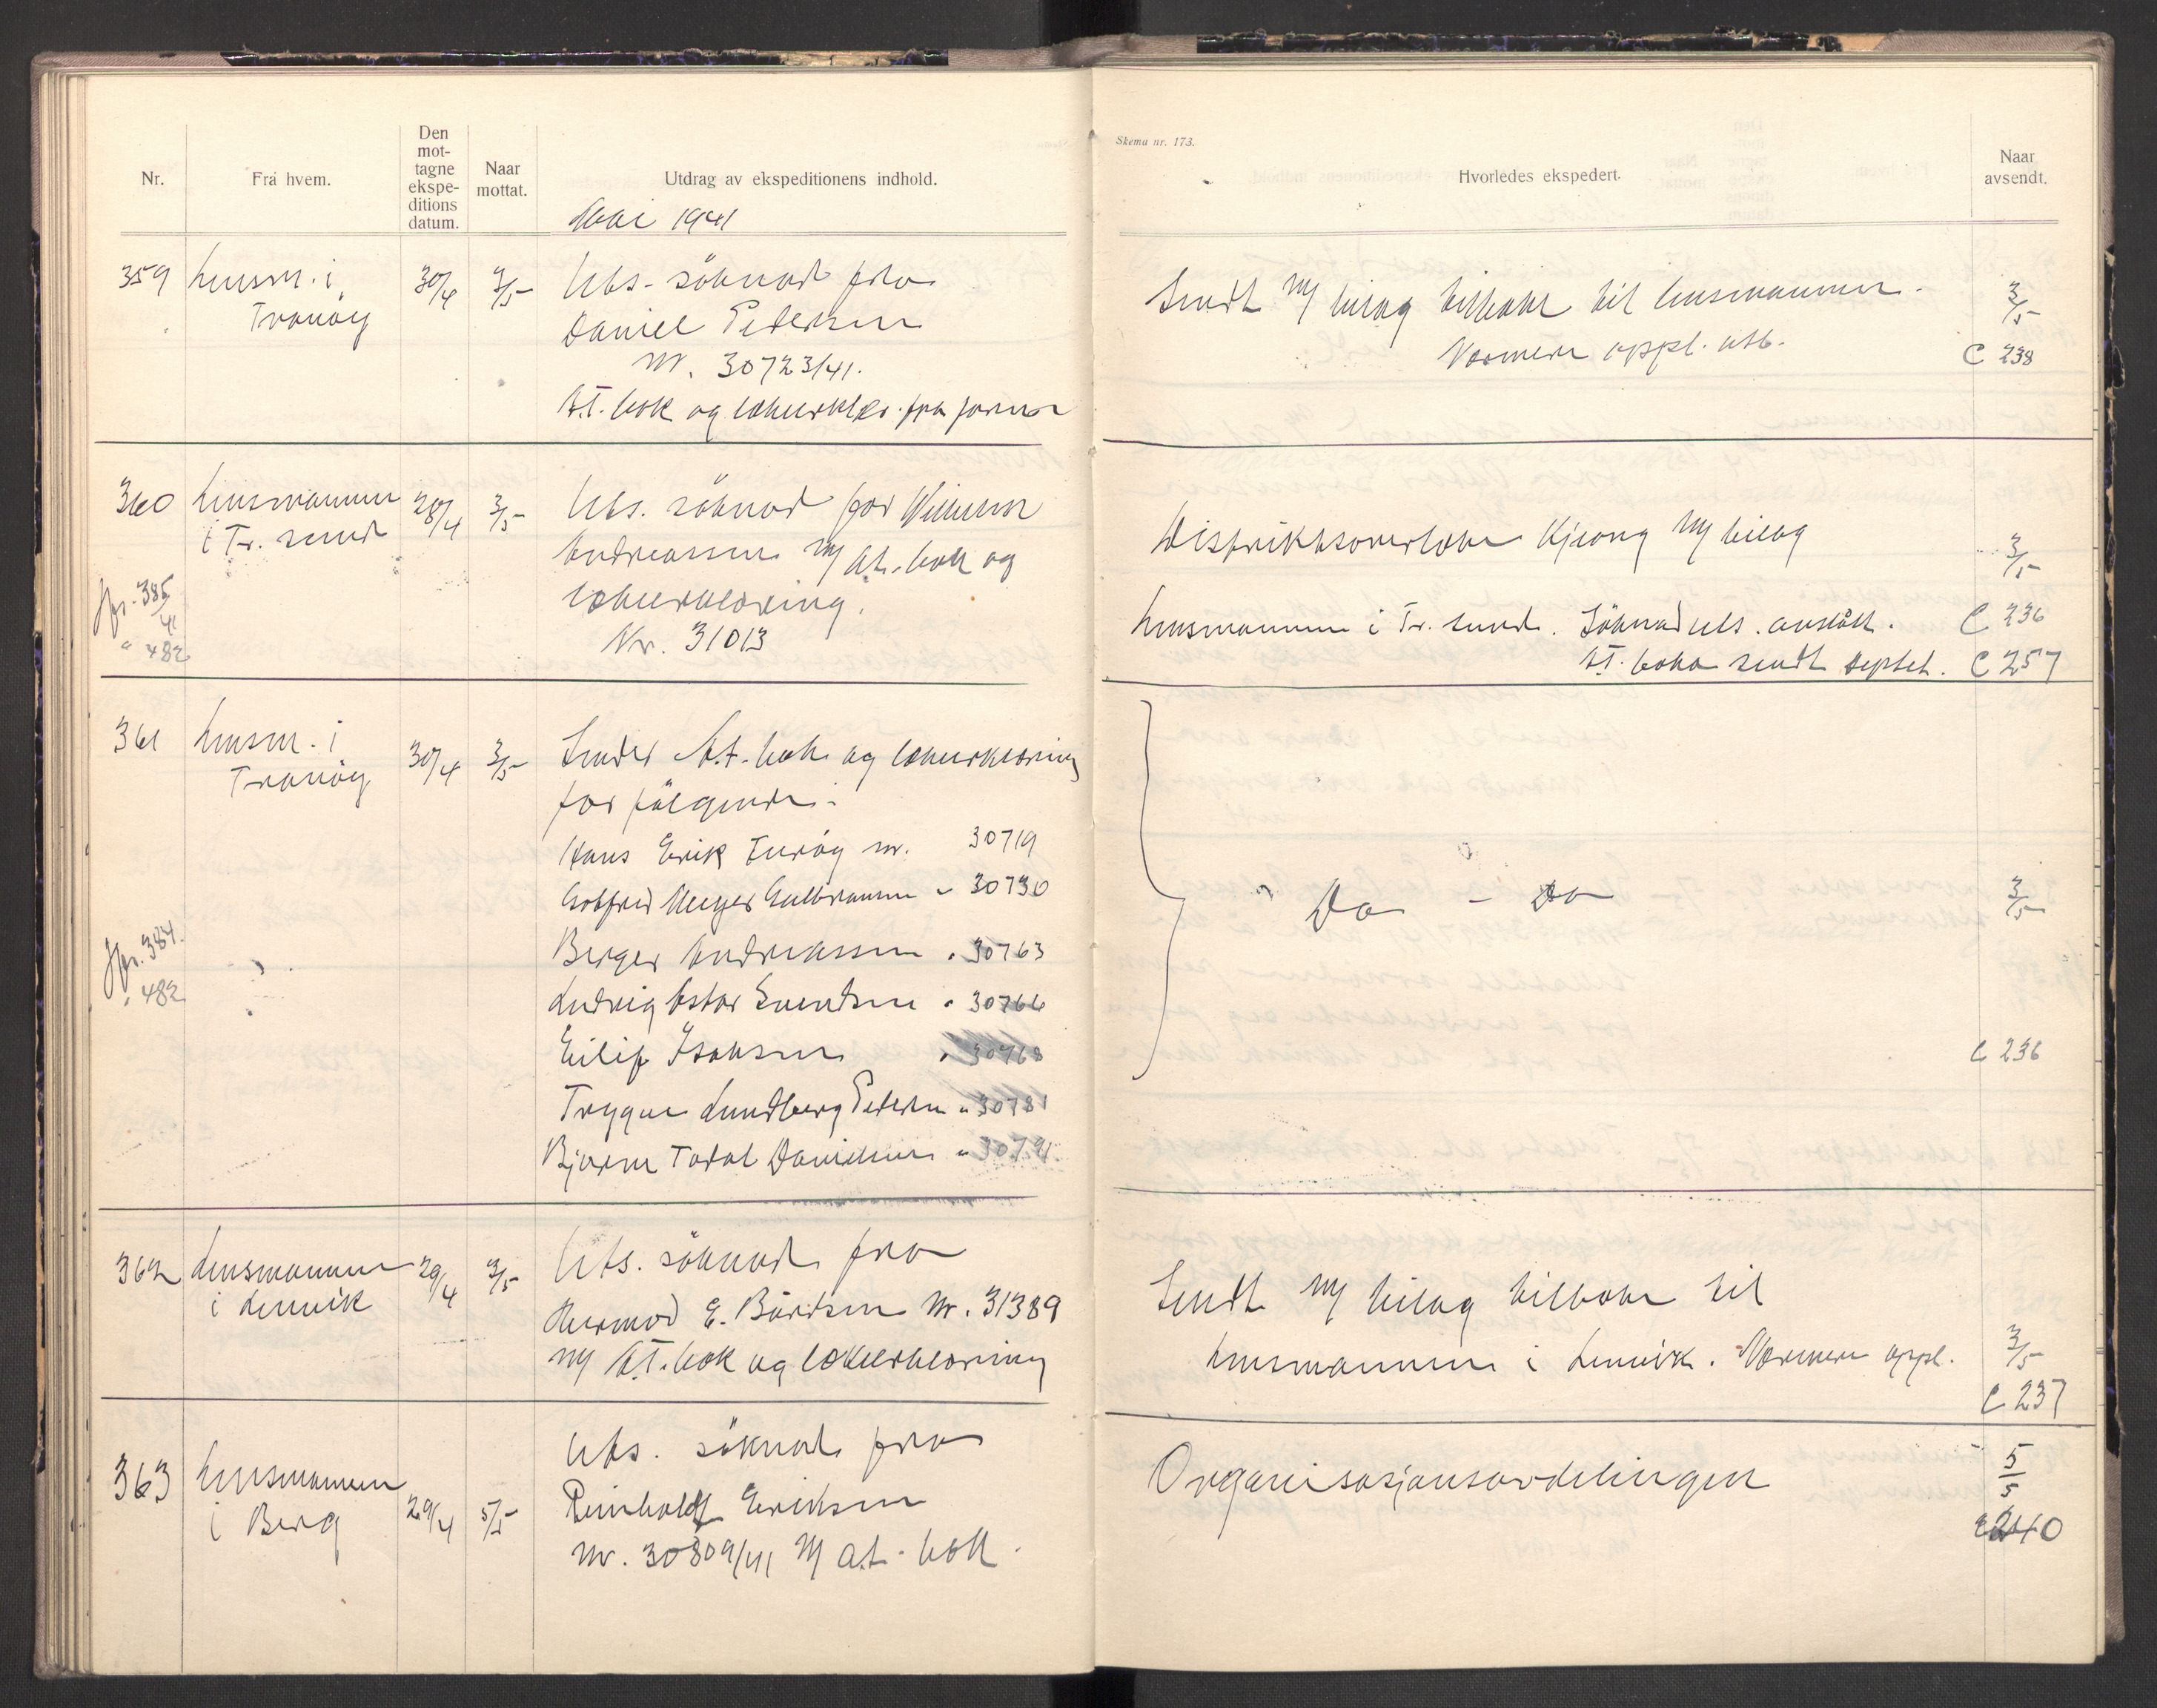 Nr.
Fra hvem.
Den
mot-
tagne
ekspe-
ditions
datum.
Naar
mottat.
Utdrag av ekspeditionens indhold.
Mai 1941
359
Lensm. i
Tranøy
30/4
3/5
Uts. söknad fra
Daniel Pedersen
nr. 30723/41.
A.T. bok og fra
360
Lensmannen
i Tr. sund
28/4
3/5
Uts. söknad for
Andreassen m/ A.t. bok og
lækeerklæring.
Nr. 31013
Jfr. 385/41
" 482
361
Lensm. i
Tranöy
30/4
3/5
Sender A.t. bok og lækeerklæring
for fölgende:
Hans Erik nr. 30719
Gotfred Meyer " 30730
Berger Andreassen " 30763
Ludvig Svendsen " 30766
Eilif Isaksen " 30768
Trygve Lundberg Pedersen " 30781
Bjarne Danielsen " 30791
Jfr. 384.
" 482
362
Lensmannen
i Lenvik
29/4
3/5
Uts. söknad fra
Hermod E. Bårdsen Nr. 31389
m/ A.T. bok og lækeerklæring
363
Lensmannen
i Berg
29/4
5/5
Uts. söknad fra
Reinholdt Eriksen
nr. 30809/41 m/ a.t. bok.
Skema nr. 173.
Hvorledes ekspedert.
Naar
avsendt.
Sendt m/ bilag tilbake til lensmannen.
Nærmere oppl. utb.
3/5
C 238
Distriktsoverlæge m/ bilag
3/5
Lensmannen i Tr. sund. Söknad uts. avslått.
C 236
A.T. boka sendt
C 257
Do - Do
3/5
C 236
Sendt m/ bilag tilbake til
lensmannen i Lenvik. Nærmere oppl.
3/5
C 237
Organisasjonsavdelingen
5/5
C 240